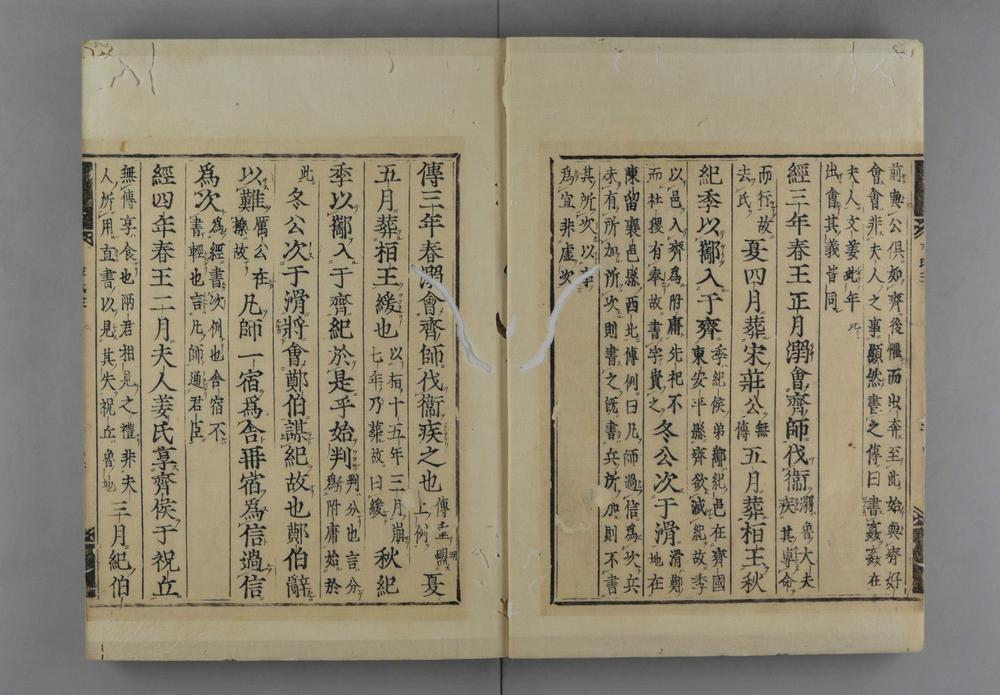 前與公俱如齊後懼而出奔至此始與齊好
會會非夫人之事顯然書之傳曰書姦姦在
夫人文姜此年
出會其義皆同
經三年春王正月溺會齊師伐衞溺魯大夫
疾其專命
而行故
去氏夏四月葬宋莊公無
傳五月葬桓王秋
紀季以酅入于齊季紀侯弟酅紀邑在齊國
東安平縣齊欲滅紀故季
以邑入齊為附庸先祀不
而社稷有奉故書字貴之冬公次于滑滑鄭
地在
陳留襄邑縣西北傳例曰凡師過信為次兵
未有所加所次則書之既書兵所加則不書
其所次以事
為宜非虛次
傳三年春溺會齊師伐衞疾之也傳重明
上例夏
五月葬桓王緩也以桓十五年三月崩
七年乃葬故曰緩秋紀
季以酅入于齊紀於是乎始判判分也言分
為附庸始於
此冬公次于滑將會鄭伯謀紀故也鄭伯辭
以難厲公在
櫟故凡師一宿為舍再宿為信過信
為次為經書次例也舍宿不
書輕也言凡師通君臣
經四年春王二月夫人姜氏享齊侯于祝丘
無傳享食也兩君相見之禮非夫
人所用直書以見其失祝丘魯地三月紀伯